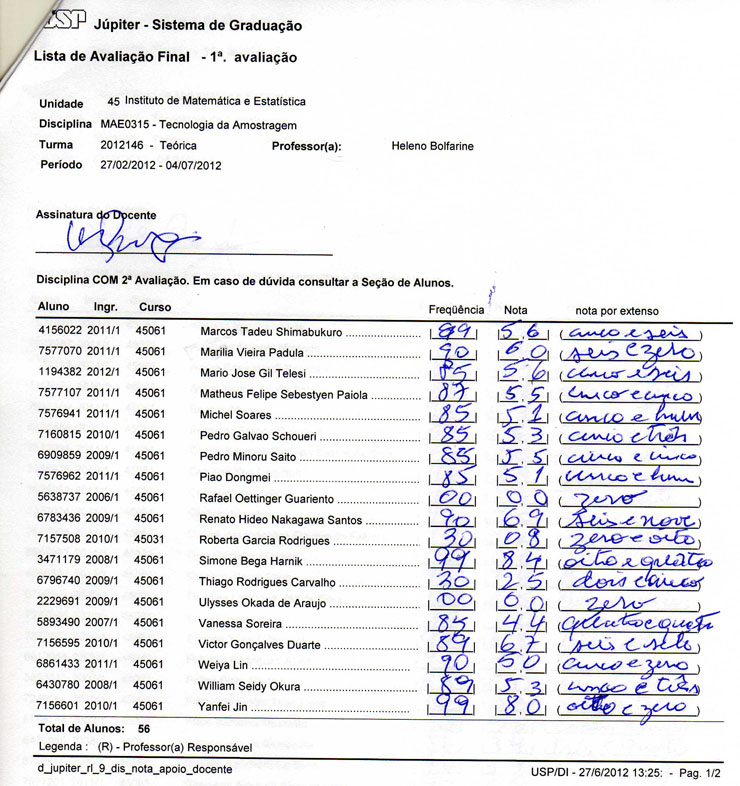 USP Júpiter - Sistema de Graduação
Lista de Avaliação Final - 1ª. avaliação
Unidade 45 Instituto de Matemática e Estatística
Disciplina MAE0315 - Tecnologia da Amostragem
Turma 2012146 - Teórica Professor(a): Heleno Bolfarine
Período 27/02/2012 - 04/07/2012
Assinatura do Docente
Disciplina COM 2ª Avaliação. Em caso de dúvida consultar a Seção de Alunos.
Aluno Ingr. Curso Freqüência Nota nota por extenso
4156022 2011/1 45061 Marcos Tadeu Shimabukuro 89 5.6 (cinco e seis)
7577070 2011/1 45061 Marilia Vieira Padula 90 6.0 (seis e zero)
1194382 2012/1 45061 Mario Jose Gil Telesi 85 5.6 (cinco e seis)
7577107 2011/1 45061 Matheus Felipe Sebestyen Paiola 87 5.5 (cinco e cinco)
7576941 2011/1 45061 Michel Soares 85 5.1 (cinco e hum)
7160815 2010/1 45061 Pedro Galvao Schoueri 85 5.3 (cinco e três)
6909859 2009/1 45061 Pedro Minoru Saito 85 5.5 (cinco e cinco)
7576962 2011/1 45061 Piao Dongmei 85 5.1 (cinco e hum)
5638737 2006/1 45061 Rafael Oettinger Guariento 00 0.0 (zero)
6783436 2009/1 45061 Renato Hideo Nakagawa Santos 90 6.9 (seis e nove)
7157508 2010/1 45031 Roberta Garcia Rodrigues 30 0.8 (zero e oito)
3471179 2008/1 45061 Simone Bega Harnik 99 8.4 (oito e quatro)
6796740 2009/1 45061 Thiago Rodrigues Carvalho 30 2.5 (dois e cinco)
2229691 2009/1 45061 Ulysses Okada de Araujo 00 0.0 (zero)
5893490 2007/1 45061 Vanessa Soreira 85 4.4 (quatro e quatro)
7156595 2010/1 45061 Victor Gonçalves Duarte 89 6.7 (seis e sete)
6861433 2011/1 45061 Weiya Lin 90 5.0 (cinco e zero)
6430780 2008/1 45061 William Seidy Okura 89 5.3 (cinco e três)
7156601 2010/1 45061 Yanfei Jin 99 8.0 (oito e zero)
Total de Alunos: 56
Legenda : (R) - Professor(a) Responsável
d_jupiter_rl_9_dis_nota_apoio_docente USP/DI - 27/6/2012 13:25: - Pag. 1/2